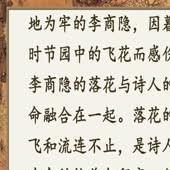 地为牢的李商隐，因暮
时节园中的飞花而感伤
李商隐的落花与诗人的
命融合在一起。落花的
飞和流连不止，是诗人